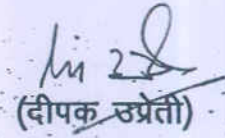 (दीपक उप्रेती)